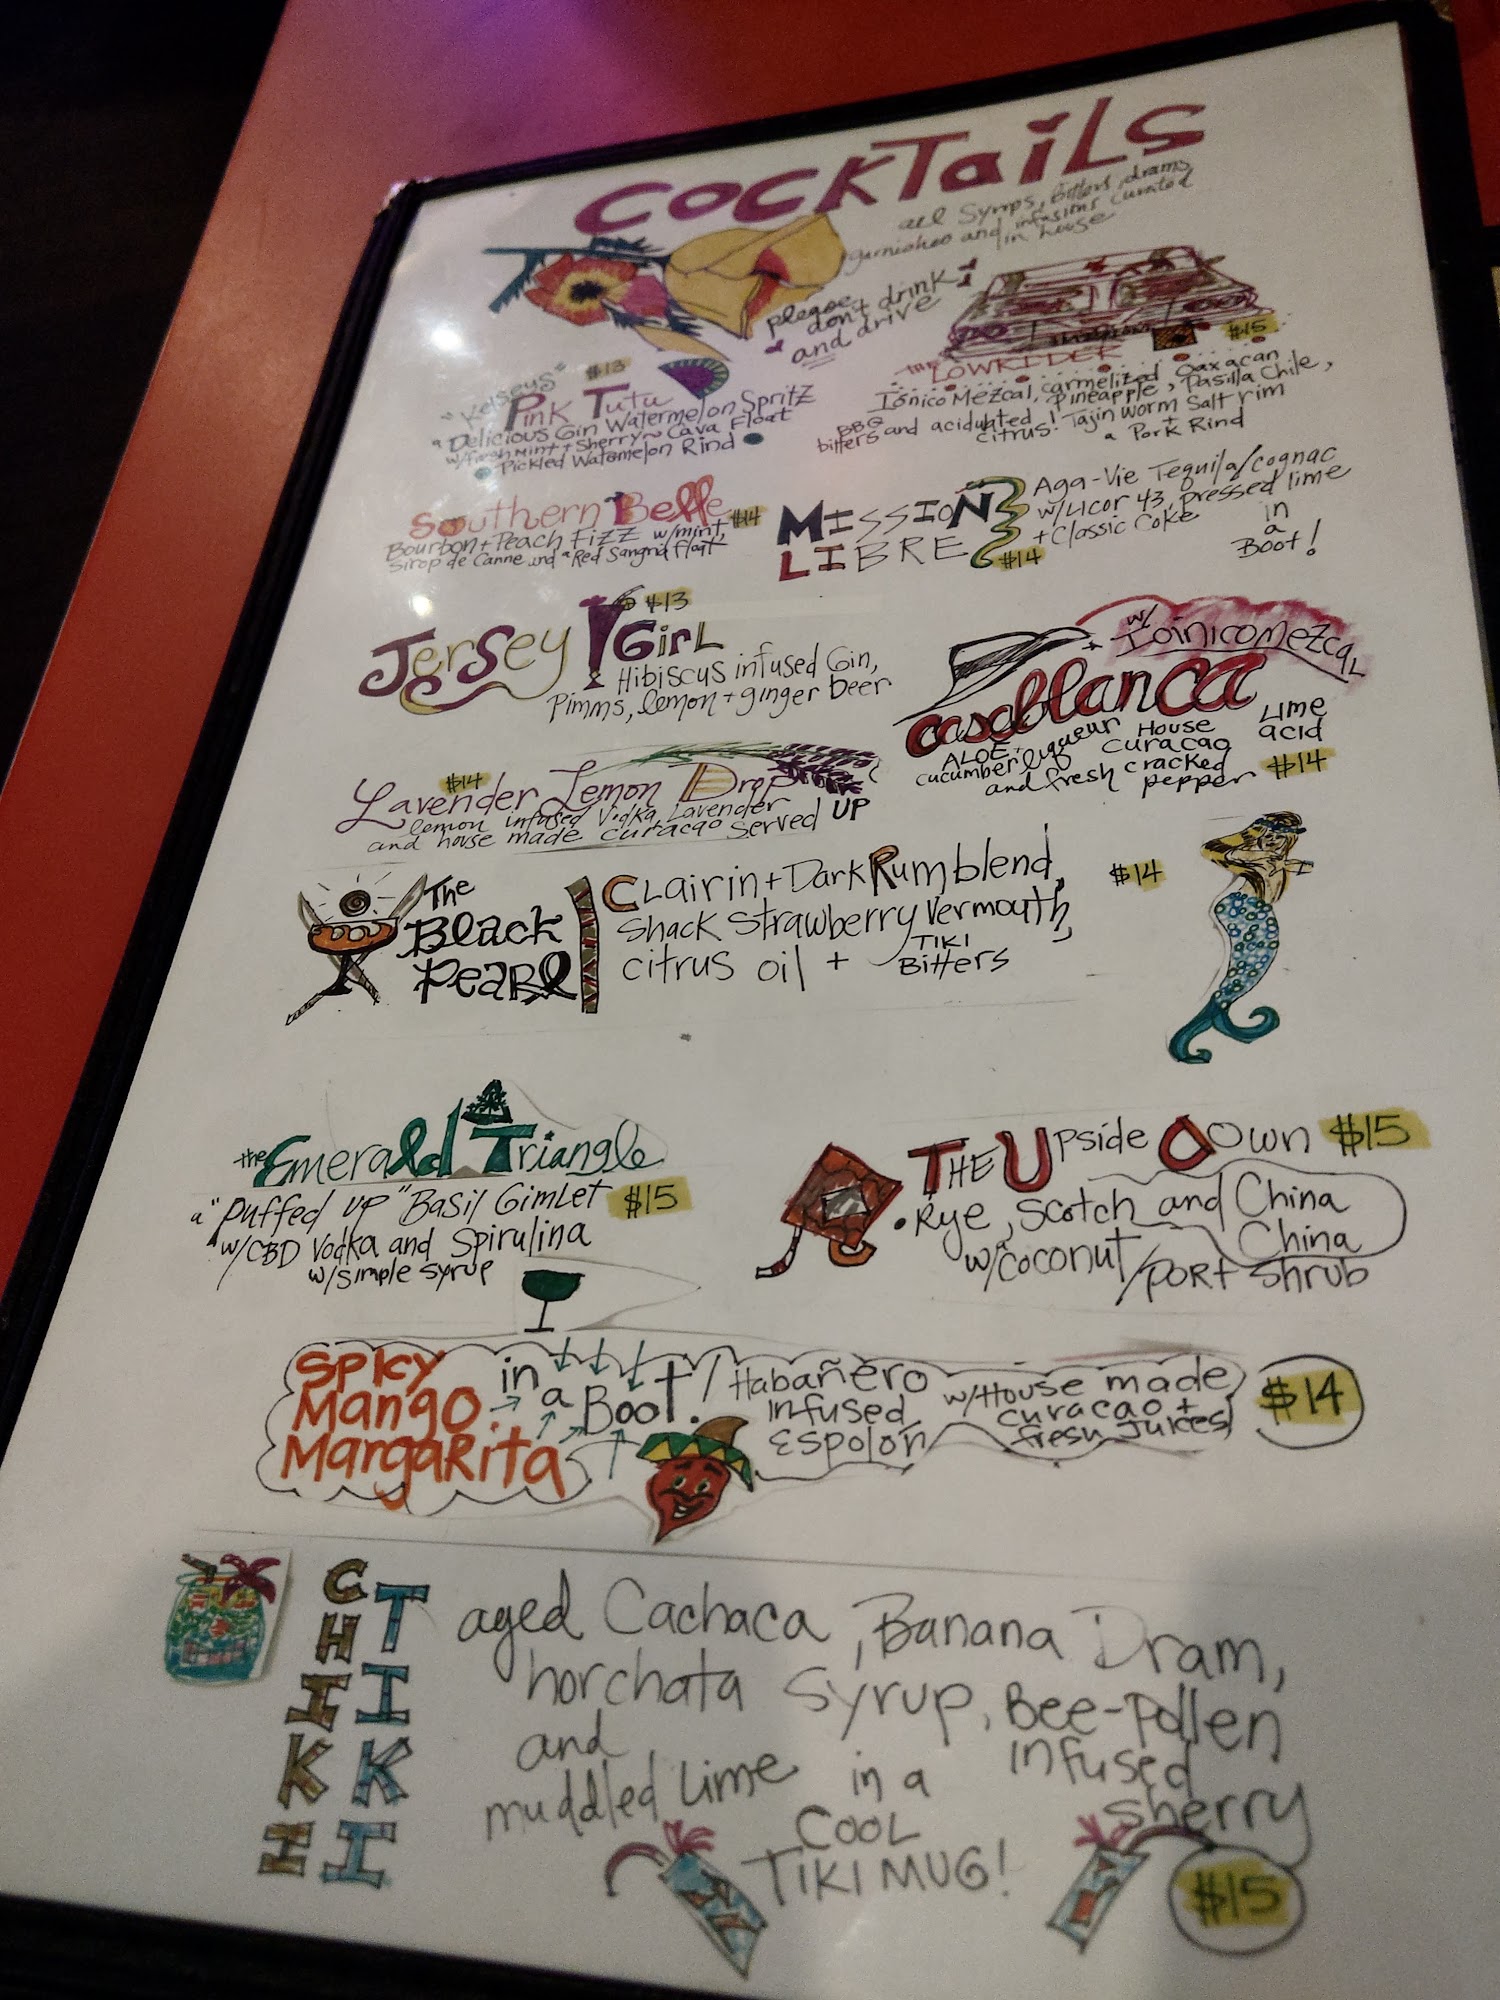 Cocktails
all Syrups, Bitters, drams,
garnishes and infusions curated
in house
please
don't drink
and drive
"Kelseys" $13
Pink Tutu
a Delicious Gin Watermelon Spritz
w/fresh Mint + Sherry ~ Cava Float
Pickled Watermelon Rind
$15
THE LOWRIDER
Mezcal, carmelized Oaxacan
Pineapple, Pasilla Chile,
BBQ
bitters and acidulated citrus! Tajin worm Salt rim
+
a Pork Rind
Southern Belle $14
Bourbon + Peach Fizz w/mint,
Sirop de Canne and a Red Sangria float
MISSION
LIBRE $14
Aga-Vie Tequila/cognac
w/Licor 43, pressed lime
+ Classic Coke
in
a
Boot!
Jersey Girl $13
Hibiscus infused Gin,
Pimms, lemon + ginger beer
w/
IoinicoMezcal
casablanca
ALOE +
cucumber liqueur
House
curacao
Lime
acid
and fresh cracked
pepper $14
$14
Lavender Lemon Drop
lemon infused Vodka, Lavender
and house made curacao served UP
The
Black
Pearl
Clairin + Dark Rum blend, $14
Shack Strawberry Vermouth,
citrus oil + TIKI
Bitters
the Emerald Triangle
a "Puffed UP" Basil Gimlet $15
w/CBD Vodka and Spirulina
w/simple syrup
The Upside Down $15
•Rye, Scotch and China
China
w/coconut/port shrub
Spicy
Mango
Margarita
in
a Boot./
Habañero
infused
Espolón
w/House made
curacao +
fresh Juices
$14
CHIKI
TIKI
aged Cachaca, Banana Dram,
horchata Syrup, Bee-Pollen
infused
Sherry
and
muddled lime in a
COOL
TIKI MUG!
$15